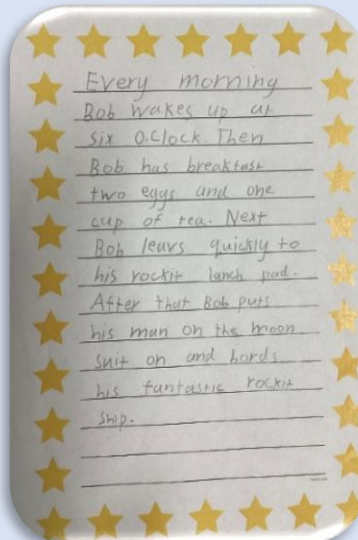 Every morning
Bob wakes up at
six O.Clock. Then
Bob has breakfast
two eggs and one
cup of tea. Next
Bob leavs quickly to
his rockit lanch pad.
After that Bob puts
his man on the moon
suit on and bords
his fantastic rockit
ship.